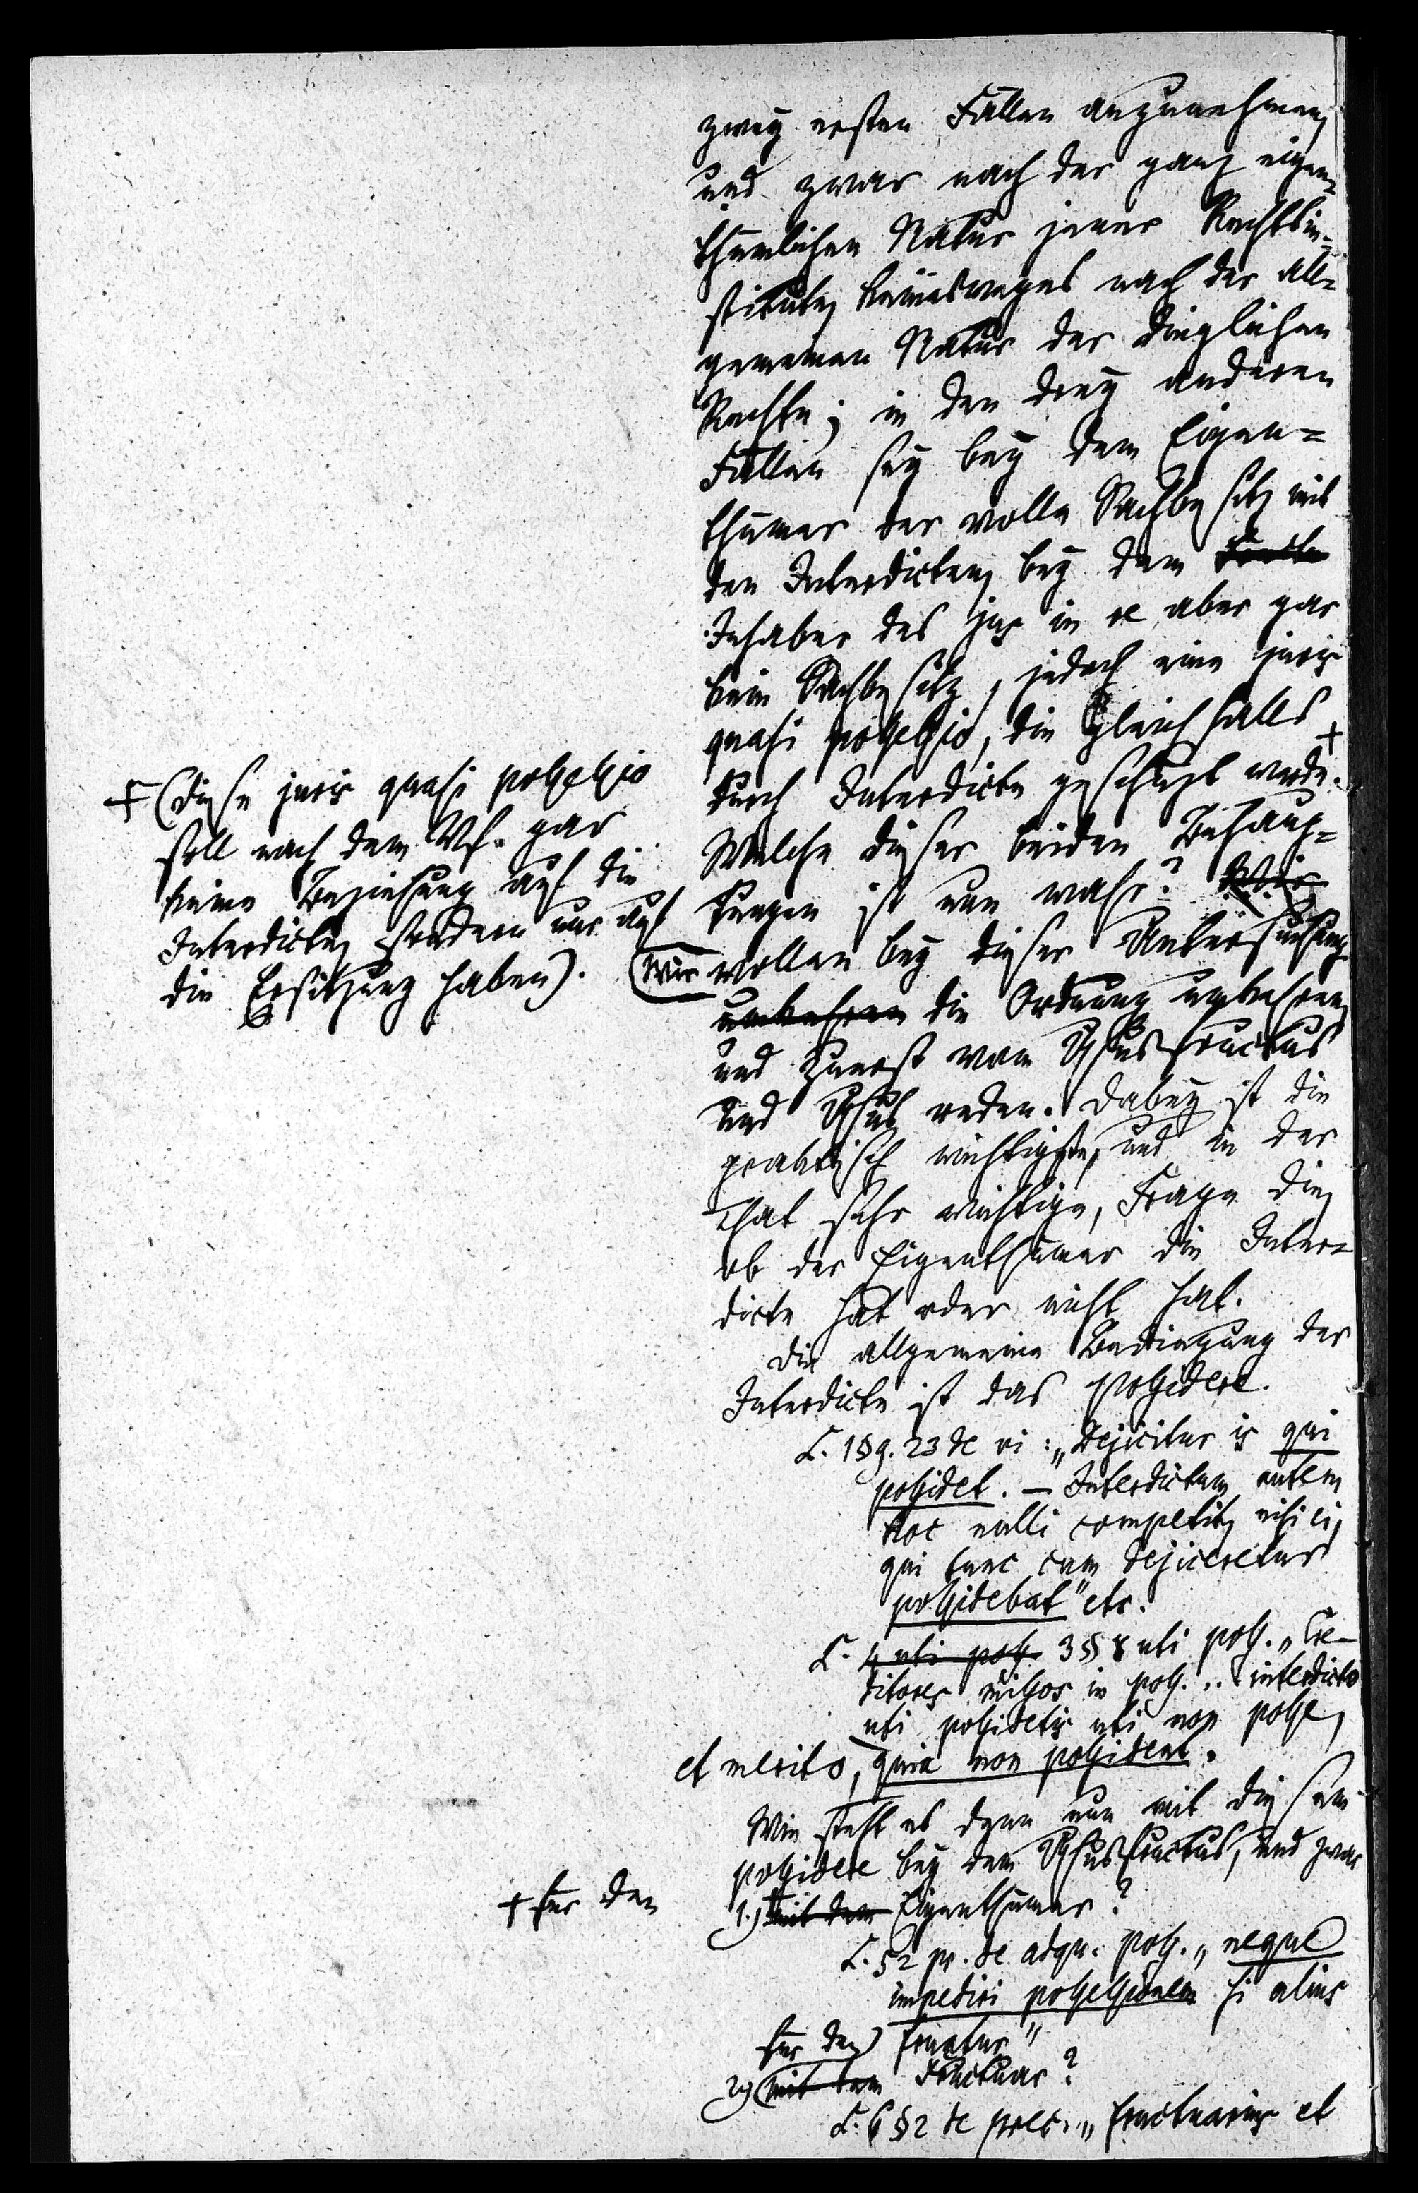 zwey ersten Fällen anzunehmen,
und zwar nach der ganz eigen=
thümlichen Natur jener Rechtsin=
stitute, keinesweges nach der all=
gemeinen Natur der dinglichen
Rechte; in den drey anderen
Fällen sey bey dem Eigen=
thümer der volle Sachbesitz mit
den Interdicten, bey dem
Inhaber des jus in re aber gar
kein Sachbesitz, jedoch eine juris
quasi possessio, die gleichfalls +
durch Interdicte geschützt werde.
Welche dieser beiden Behaup=
tungen ist nun wahr? Wir
wollen bey dieser Untersuchung
umkehren die Ordnung umkehren,
und zuerst vom Ususfructus
und Usus reden. Dabey ist die
praktisch wichtigste, und in der
That sehr wichtige, Frage die,
ob der Eigenthümer die Inter=
dicte hat oder nicht hat.
Die allgemeine Bedingung der
Interdicte ist das possidere.
L. 1 § 9. 23 de vi: „Dejicitur is qui
possidet. — Interdictum autem
hoc nulli competit, nisi ei,
qui tunc cum dejiceretur
possidebat" etc.
L. 4 uti poss. 3 § 8 uti poss. „Cre-
ditores missos in poss. .. interdicto
uti possidetis uti non posse,
et merito, quia non possident.
Wie steht es denn nun mit diesem
possidere bey dem Ususfructus, und zwar
1.) mit dem Eigenthümer?
L. 52 pr. de adqu. poss. „neque
impediri possessionem si alius
fruatur"
für den
2.) mit dem Fructuar?
L. 6 § 2 de prec. „fructuarius et
+ (diese juris quasi possessio
soll nach dem Vf. gar
keine Beziehung auf die
Interdicte, sondern nur auf
die Ersitzung haben).
Wir
+ für den